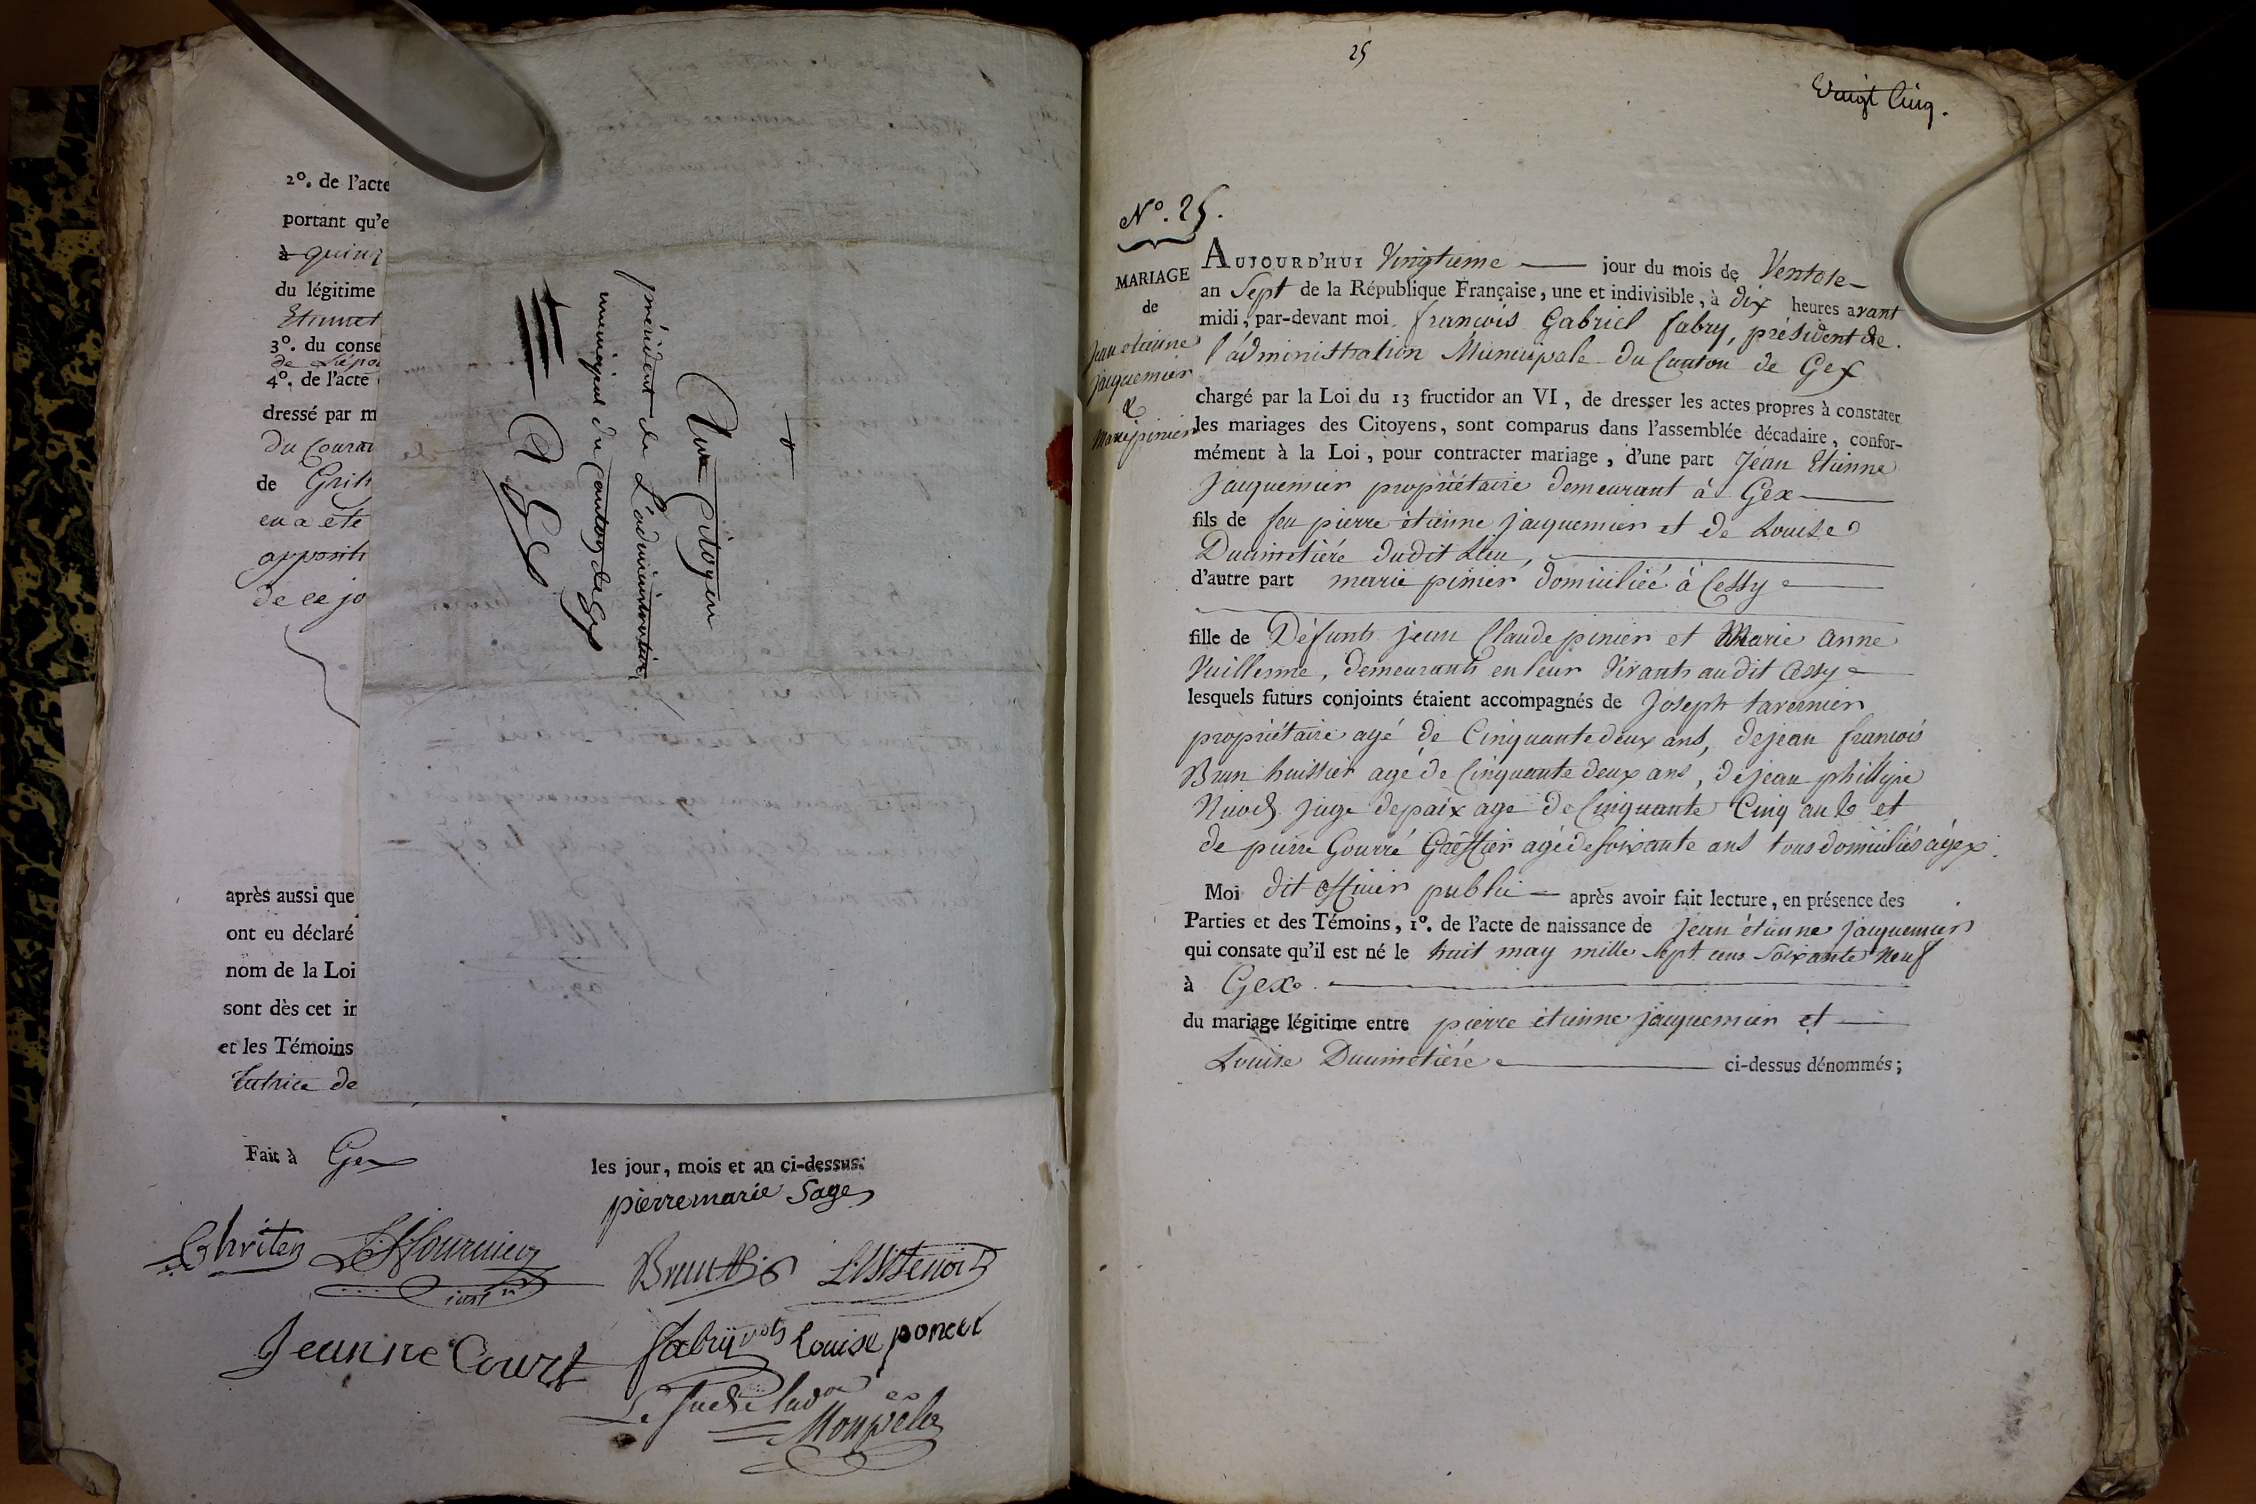 2º. de l'acte
portant qu'e
à quinz
du légitime
3º. du conse
4º. de l'acte
dressé par m
du Couran
de Grill
en a été
de ce jo
après aussi que
ont eu déclaré
nom de la Loi
sont dès cet in
et les Témoins
tutrice de
Fait à Gex
les jour, mois et an ci-dessus.
pierre marie Sage
Jeanne Court
fabry
Louise poncet
Au Citoyen
président de L'administration
municipal du Canton de Gex
A Gex
25
Vingt Cinq.
Nº. 25.
MARIAGE
de
Jean etienne
jaquemier
&
Marie pinier
AUJOURD'HUI Vingtieme jour du mois de Ventose
an Sept de la République Française, une et indivisible, à dix heures avant
midi, par-devant moi françois Gabriel fabry, président de
l'administration Municipale du Canton de Gex
chargé par la Loi du 13 fructidor an VI, de dresser les actes propres à constater
les mariages des Citoyens, sont comparus dans l'assemblée décadaire, confor-
mément à la Loi, pour contracter mariage, d'une part Jean Etienne
Jaquemier propriétaire demeurant à Gex
fils de feu pierre étienne jaquemier et de Louise
Ducimetiére dudit Lieu,
d'autre part marie pinier domiciliée à Cessy
fille de Défunts jean Claude pinier et Marie anne
Vuillerme, demeurants en leur vivants au dit Cessy
lesquels futurs conjoints étaient accompagnés de Joseph tavernier
propriétaire agé de Cinquante deux ans, de jean francois
Brun huissier agé de Cinquante deux ans, de jean phillipe
Nicod juge de paix age de Cinquante Cinq ans et
de pierre Gourré Greffier agé de soixante ans tous domiciliés à gex.
Moi dit officier public après avoir fait lecture, en présence des
Parties et des Témoins, 1º. de l'acte de naissance de Jean étienne jaquemier
qui consate qu'il est né le huit may mille sept cens soixante neuf
à Gex
du mariage légitime entre pierre étienne jaquemier et
Louise Ducimetiére ci-dessus dénommés;